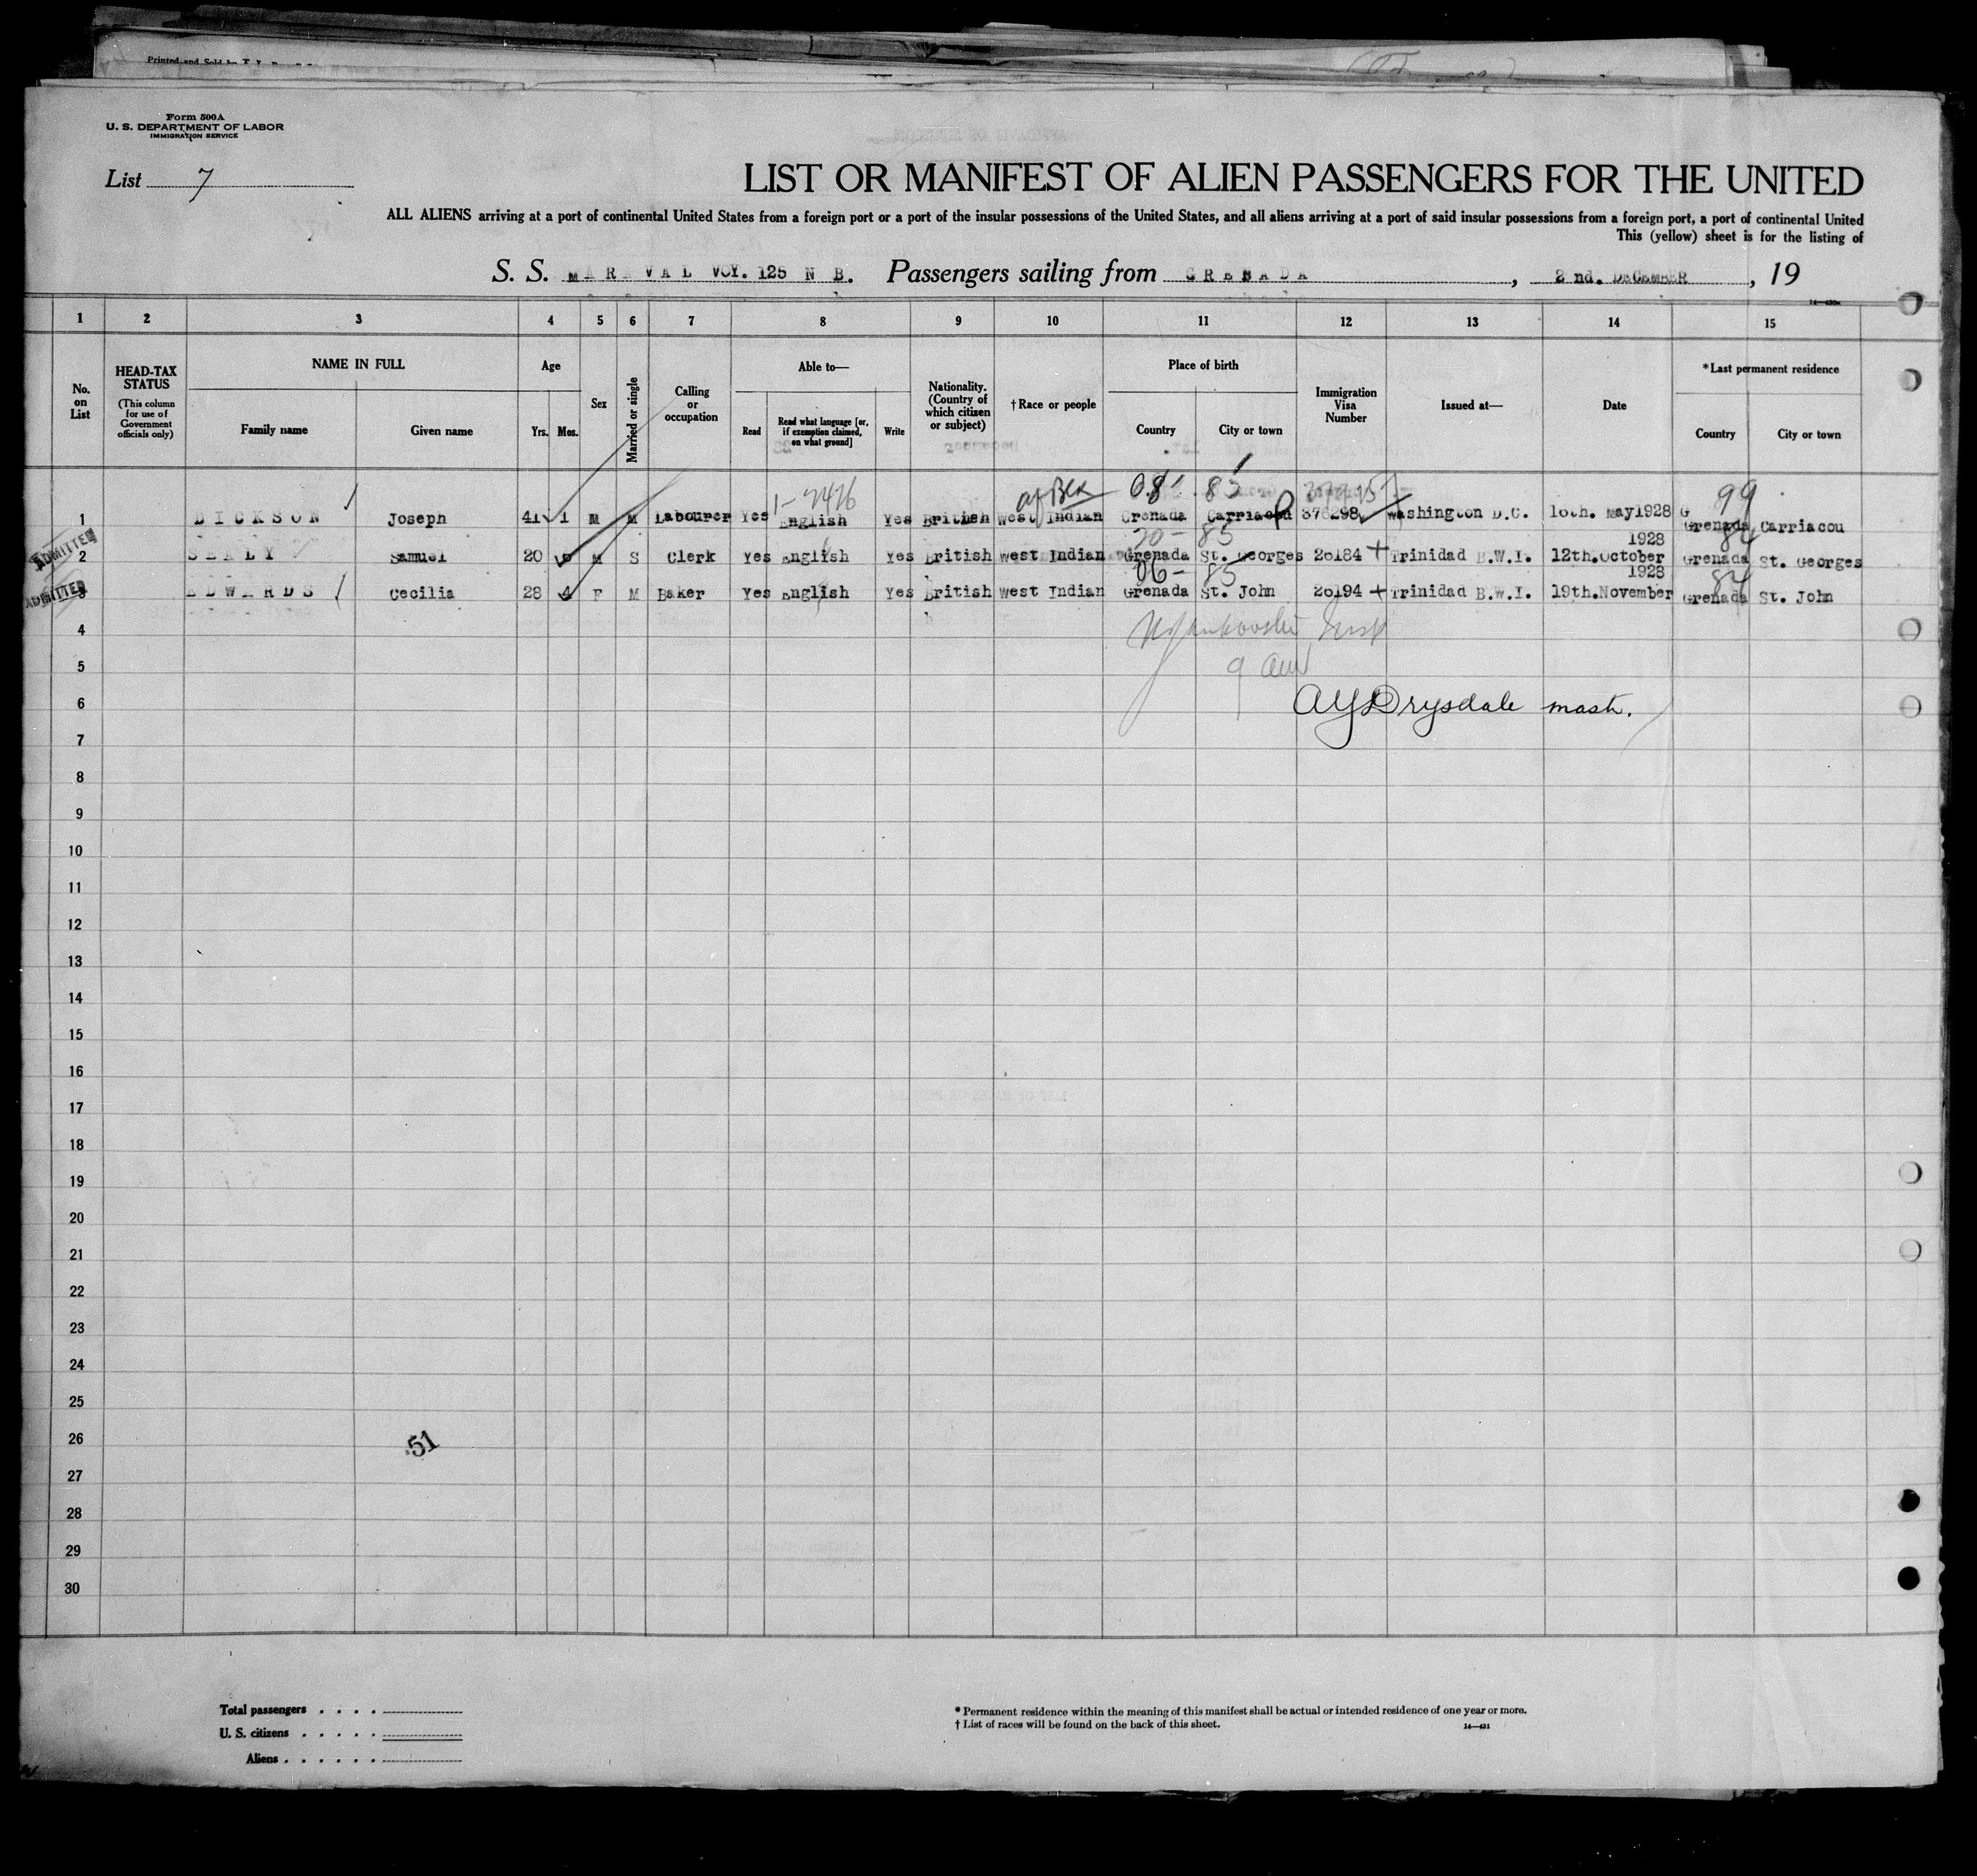 Printed and Sold by
Form 500A
U. S. DEPARTMENT OF LABOR
IMMIGRATION SERVICE
List 7
LIST OR MANIFEST OF ALIEN PASSENGERS FOR THE UNITED
ALL ALIENS arriving at a port of continental United States from a foreign port or a port of the insular possessions of the United States, and all aliens arriving at a port of said insular possessions from a foreign port, a port of continental United
This (yellow) sheet is for the listing of
S. S. MARAVAL VOY. 125 N B. Passengers sailing from GRENADA, 2 nd. DECEMBER, 19
1 2 3 4 5 6 7 8 9 10 11 12 13 14 15
No. on List
HEAD-TAX STATUS
(This column for use of Government officials only)
NAME IN FULL
Family name Given name
Age
Yrs. Mos.
Sex
Married or single
Calling or occupation
Able to—
Read
Read what language [or, if exemption claimed, on what ground]
Write
Nationality. (Country of which citizen or subject)
† Race or people
Place of birth
Country City or town
Immigration Visa Number
Issued at—
Date
* Last permanent residence
Country City or town
1-7476 08 85 99
1 DICKSON Joseph 41 1 M M Labourer Yes English Yes British West Indian Grenada Carriacou 376298 Washington D.C. 16th. May1928 G Grenada Carriacou
20- 85 1928 84
ADMITTED 2 SEALY Samuel 20 M S Clerk Yes English Yes British West Indian Grenada St. Georges 26184 + Trinidad B.W.I. 12th.October Grenada St. Georges
06- 85 1928 84
ADMITTED 3 EDWARDS Cecilia 28 4 F M Baker Yes English Yes British West Indian Grenada St. John 26194 + Trinidad B.W.I. 19th.November Grenada St. John
4
5
6 Drysdale
7
8
9
10
11
12
13
14
15
16
17
18
19
20
21
22
23
24
25
26 51
27
28
29
30
Total passengers
U. S. citizens
Aliens
* Permanent residence within the meaning of this manifest shall be actual or intended residence of one year or more.
† List of races will be found on the back of this sheet.
14—431